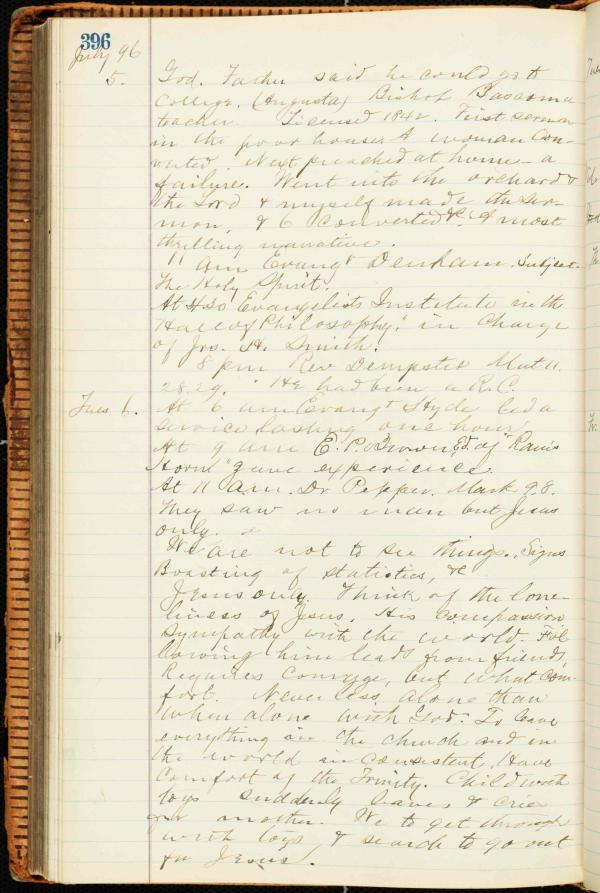 396
July 96
5. God. Father said he could go to
College. (Augusta) Bishop Bascom a
teacher. Licensed 1842. First sermon
in the poor house & woman Con-
verted. Next preached at home - a
failure. Went into the orchard &
the Lord & myself made the ser-
mon, & 6 converted &c. A most
thrilling narrative.
11 am Evangt Denham. Subject-
The Holy Spirit.
At 4.30 Evangelists Institute in the
Hall of Philosophy," in Charge
of Jos. H. Smith.
8 pm Rev Dempster Mat 11.
28.29. He had been a R.C.
Tues 6. At 6 am Evangt Hyde led a
service lasting one hour
At 9 am E. P. Brown Ed. of "Ram's
Horn" gave experience.
At 11 am. Dr Pepper. Mark 9.8.
They saw no man but Jesus
only.
We are not to see things. Signs
Boasting of statistics, &c
Jesus only. Think of the lone-
liness of Jesus. His compassion
sympathy with the world. Fol
lowing him leads from friends,
Requires Courage, but what Com-
fort. Never less alone than
when alone with God. To leave
everything in the church and in
the world inconsistent, Have
Comfort of the Trinity. Child with
toys suddenly leaves & cries
for mother. We to get through
with toys, & search to go out
for Jesus.